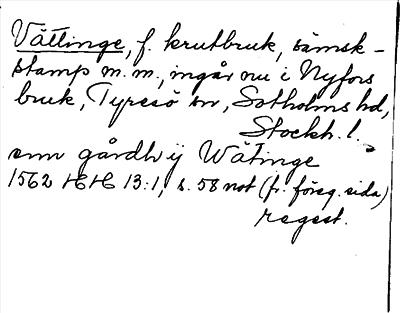 Vättinge, f. krutbruk, sämsk-
stamp m.m., ingår nu i Nyfors
bruk, Tyresö sn, Sotholms hd,
Stockh. l.
enn gårdh ij Wätinge
1562 HH 13:1, s. 58 not (fr. föreg. sida)
regest.